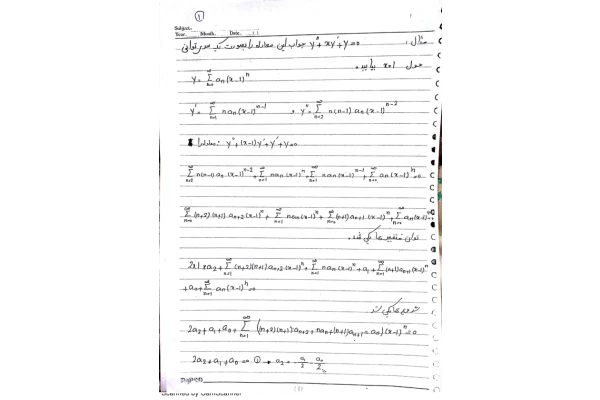 ①
Subject:
Year. Month. Date. ( )
مثال: y″+xy′+y=0 جواب این معادله را بصورت یک سری توانی
حول x=1 بیابید.
y = Σ_{n=0}^{∞} a_n (x-1)^n
y′ = Σ_{n=1}^{∞} n a_n (x-1)^{n-1} , y″ = Σ_{n=2}^{∞} n(n-1) a_n (x-1)^{n-2}
معادله: y″+(x-1)y′+y′+y=0
Σ_{n=2}^{∞} n(n-1) a_n (x-1)^{n-2} + Σ_{n=1}^{∞} n a_n (x-1)^n + Σ_{n=1}^{∞} n a_n (x-1)^{n-1} + Σ_{n=0}^{∞} a_n (x-1)^n = 0
Σ_{n=0}^{∞} (n+2)(n+1) a_{n+2} (x-1)^n + Σ_{n=1}^{∞} n a_n (x-1)^n + Σ_{n=0}^{∞} (n+1) a_{n+1} (x-1)^n + Σ_{n=0}^{∞} a_n (x-1)^n = 0
توان متغیرها یکی شد.
2×1×a_2 + Σ_{n=1}^{∞} (n+2)(n+1) a_{n+2} (x-1)^n + Σ_{n=1}^{∞} n a_n (x-1)^n + a_1 + Σ_{n=1}^{∞} (n+1) a_{n+1} (x-1)^n
+ a_0 + Σ_{n=1}^{∞} a_n (x-1)^n = 0
شروع ها یکی شد
2a_2 + a_1 + a_0 + Σ_{n=1}^{∞} ((n+2)(n+1) a_{n+2} + n a_n + (n+1) a_{n+1} + a_n) (x-1)^n = 0
2a_2 + a_1 + a_0 = 0 ① → a_2 = -a_1/2 - a_0/2
Scanned by CamScanner